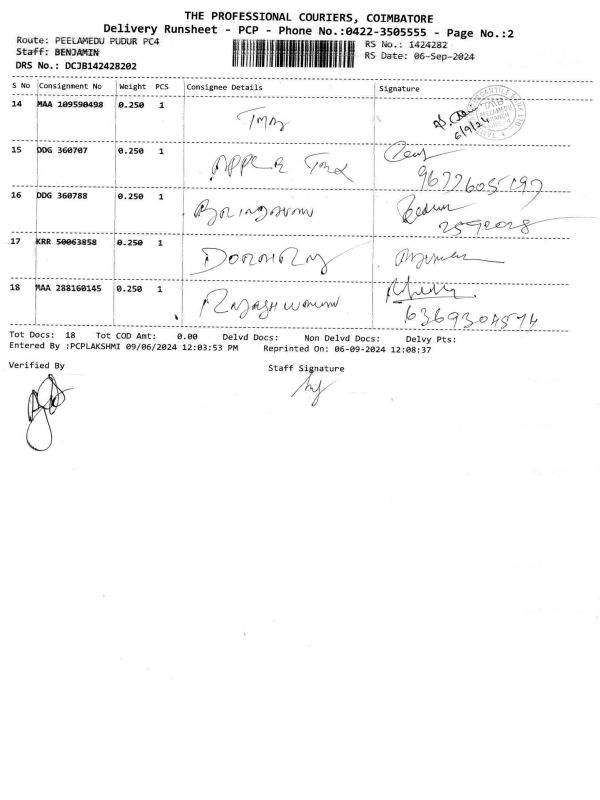 THE PROFESSIONAL COURIERS, COIMBATORE
Delivery Runsheet - PCP - Phone No.:0422-3505555 - Page No.:2
Route: PEELAMEDU PUDUR PC4 RS No.: 1424282
Staff: BENJAMIN RS Date: 06-Sep-2024
DRS No.: DCJB142428202
S No Consignment No Weight PCS Consignee Details Signature
14 MAA 109590498 0.250 1 TMB
6/9/24
15 DDG 360707 0.250 1
9677605197
16 DDG 360788 0.250 1
2592028
17 KRR 50063858 0.250 1
18 MAA 288160145 0.250 1
6369304574
Tot Docs: 18 Tot COD Amt: 0.00 Delvd Docs: Non Delvd Docs: Delvy Pts:
Entered By :PCPLAKSHMI 09/06/2024 12:03:53 PM Reprinted On: 06-09-2024 12:08:37
Verified By Staff Signature